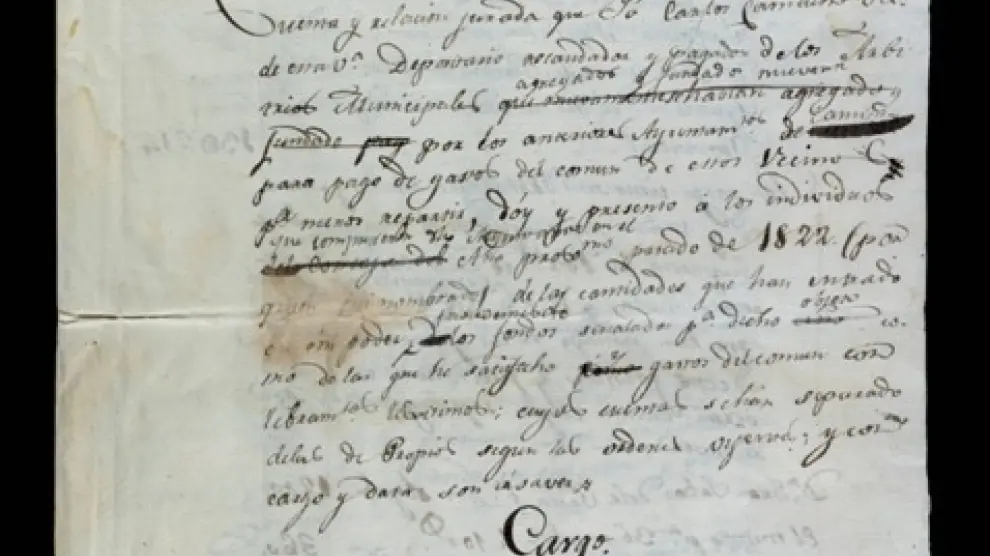 Cuenta y relacion jurada que Yo Carlos
de esta v.ª Depositario recaudador y pagador de los Arbi
agregados y fundado nuevam
trios Municipales que nuevamente havian agregado y
fundado por los anteriores Ayuntam.tos de
para pago de gastos del comun de estos Vecino
p.r menos repartir, dóy y presento à los individuos
que componian el en el
del Concejo del Año prox.mo pasado de 1822. (por
quien fui nombrado) de las cantidades que han entrado
procedimiento objeto
en mi poder, de los fondos señalados p.ª dicho co-
mo de las que he satisfecho gastos del comun con
libram.tos lexitimos; cuyas cuentas se hán separado
de las de Propios segun las ordenes y con
cargo y data son à saver
Cargo.